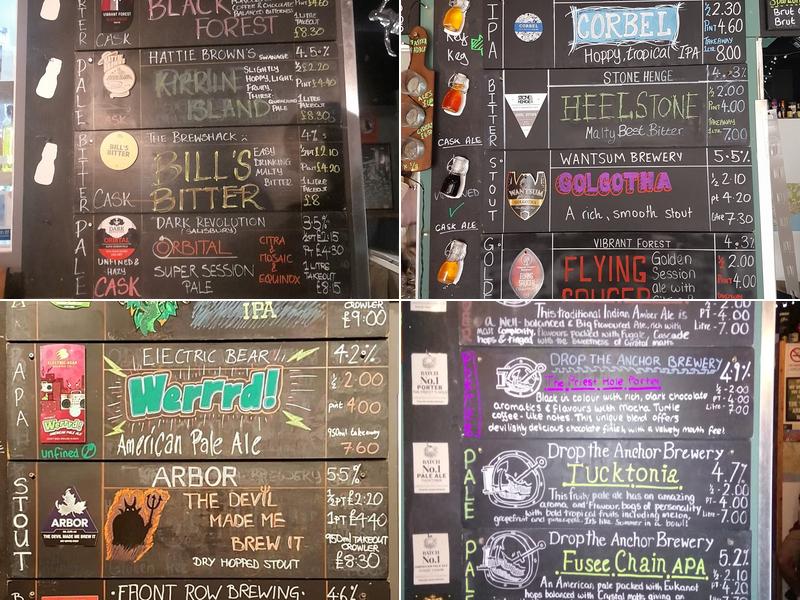 BLACK
FOREST
VIBRANT FOREST
CASK
BALANCED BITTERNESS
PINT £4.60
1 LITRE
TAKEOUT
£8.30
PALE
HATTIE BROWN'S SWANAGE 4.5%
KIRRIN
ISLAND
SLIGHTLY
HOPPY, LIGHT,
FRUITY,
THIRST-
QUENCHING
PALE
½ £2.20
PINT £4.40
1 LITRE
TAKEOUT
£8.30
BITTER
CASK
BILL'S
BITTER
THE BREWSHACK 4%
BILL'S
BITTER
EASY
DRINKING
MALTY
BITTER
½PT £2.10
PT £4.20
1 LITRE
TAKEOUT
£8
PALE
DARK
ORBITAL
UNFINED &
HAZY
CASK
DARK REVOLUTION
(SALISBURY)
ORBITAL
SUPER SESSION
PALE
CITRA
& MOSAIC
&
EQUINOX
3.5%
½PT £2.15
PT £4.30
1 LITRE
TAKEOUT
£8.15
Key
Keg
IPA
CORBEL
Hoppy, tropical IPA
½ 2.30
Pint 4.60
TAKEAWAY
Litre 8.00
CASK ALE
BITTER
STONE HENGE 4.3%
HEELSTONE
Malty Best Bitter
½ 2.00
Pint 4.00
TAKEAWAY
Litre 7.00
CASK ALE
STOUT
WANTSUM
WANTSUM BREWERY 5.5%
GOLGOTHA
A rich, smooth stout
½ 2.10
pt 4.20
Litre 7.30
GOLD
VIBRANT FOREST 4.3%
FLYING
SAUCER
Golden
Session
ale with
½ 2.00
Pint 4.00
IPA
CROWLER
£9.00
APA
ELECTRIC BEAR
Werrrd!
unfined
ELECTRIC BEAR 4.2%
Werrrd!
American Pale Ale
½ 2.00
pint 4.00
950ml takeaway
7.60
STOUT
ARBOR
THE DEVIL MADE ME BREW IT
ARBOR BREWERY 5.5%
THE DEVIL
MADE ME
BREW IT
DRY HOPPED STOUT
½PT £2.20
1PT £4.40
950ml TAKEOUT
CROWLER
£8.30
FRONT ROW BREWING 4.6%
This traditional Indian Amber Ale is
a Well-balanced & Big Flavoured Ale, rich with
malt complexity, flavours packed with Fuggle, Cascade
hops & tinged with the sweetness of Crystal malts
PT- 4.00
Litre- 7.00
BATCH
No.1
PORTER
DROP THE ANCHOR BREWERY 4.9%
The Priest Hole Porter
Black in colour with rich, dark chocolate
aromatics & flavours with mocha. Turtle
coffee like notes. This unique blend offers
devilishly delicious chocolate finish with a velvety mouth feel
½ -2.00
PT - 4.00
Litre - 7.00
PALE
BATCH
No.1
PALE ALE
Drop the Anchor Brewery 4.7%
Tucktonia
This fruity pale ale has an amazing
aroma and flavour, bags of personality
with bold tropical fruits including melon,
grapefruit and pineapple. It's like Summer in a bowl!
½ -2.00
PT- 4.00
Litre - 7.00
PALE
BATCH
No.1
Drop the Anchor Brewery 5.2%
Fusee Chain APA
An American pale packed with Eukanot
hops balanced with Crystal malts giving an
½ -2.10
PT- 4.20